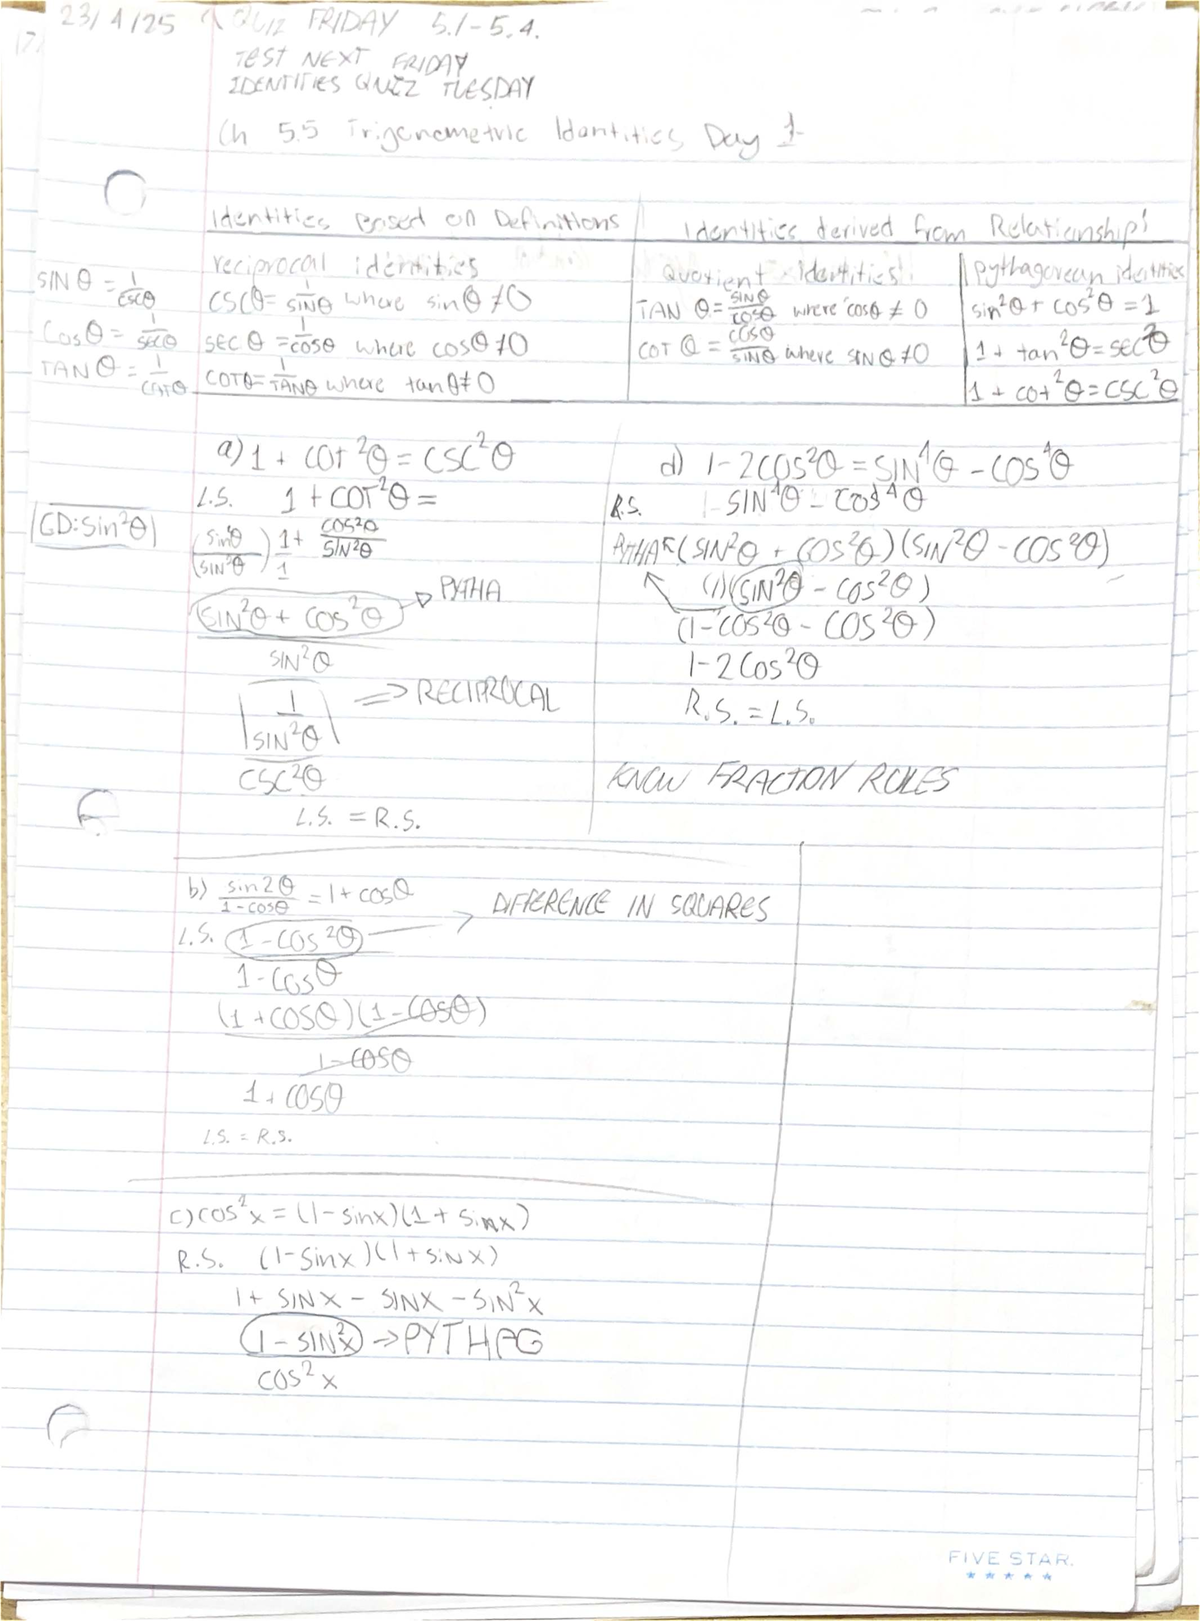 23/4/25 QUIZ FRIDAY 5.1-5.4.
TEST NEXT FRIDAY
IDENTITIES QUIZ TUESDAY
Ch 5.5 Trigonometric Identities Day 1
Identities Based on Definitions
reciprocal identities
SIN θ = 1/CSCθ
CSCθ = 1/SINθ where sin θ ≠ 0
COSθ = 1/SECθ
SEC θ = 1/COSθ where cosθ ≠ 0
TAN θ = 1/COTθ
COTθ = 1/TANθ where tan θ ≠ 0
Identities derived from Relationship's
Quotient identities
TAN θ = SINθ/COSθ where cosθ ≠ 0
COT θ = COSθ/SINθ where SINθ ≠ 0
pythagorean identities
sin²θ + cos²θ = 1
1 + tan²θ = sec²θ
1 + cot²θ = CSC²θ
a) 1 + COT²θ = CSC²θ
L.S. 1 + COT²θ =
CD: Sin²θ
(Sin²θ/SIN²θ) 1/1 + COS²θ/SIN²θ
SIN²θ + COS²θ → PYTHA
SIN²θ
1/SIN²θ => RECIPROCAL
CSC²θ
L.S. = R.S.
d) 1-2COS²θ = SIN⁴θ - COS⁴θ
R.S. SIN⁴θ - COS⁴θ
PYTHA (SIN²θ + COS²θ)(SIN²θ - COS²θ)
(1)(SIN²θ - COS²θ)
(1-COS²θ - COS²θ)
1-2COS²θ
R.S. = L.S.
KNOW FRACTION RULES
b) sin2θ/1-cosθ = 1 + cosθ
L.S. 1 - COS²θ → DIFFERENCE IN SQUARES
1 - COSθ
(1 + COSθ)(1 - COSθ)
1 - COSθ
1 + COSθ
L.S. = R.S.
c) cos²x = (1 - sinx)(1 + sinx)
R.S. (1 - Sinx)(1 + SiNx)
1 + SINX - SINX - SIN²x
1 - SIN²x → PYTHAG
COS²x
FIVE STAR.